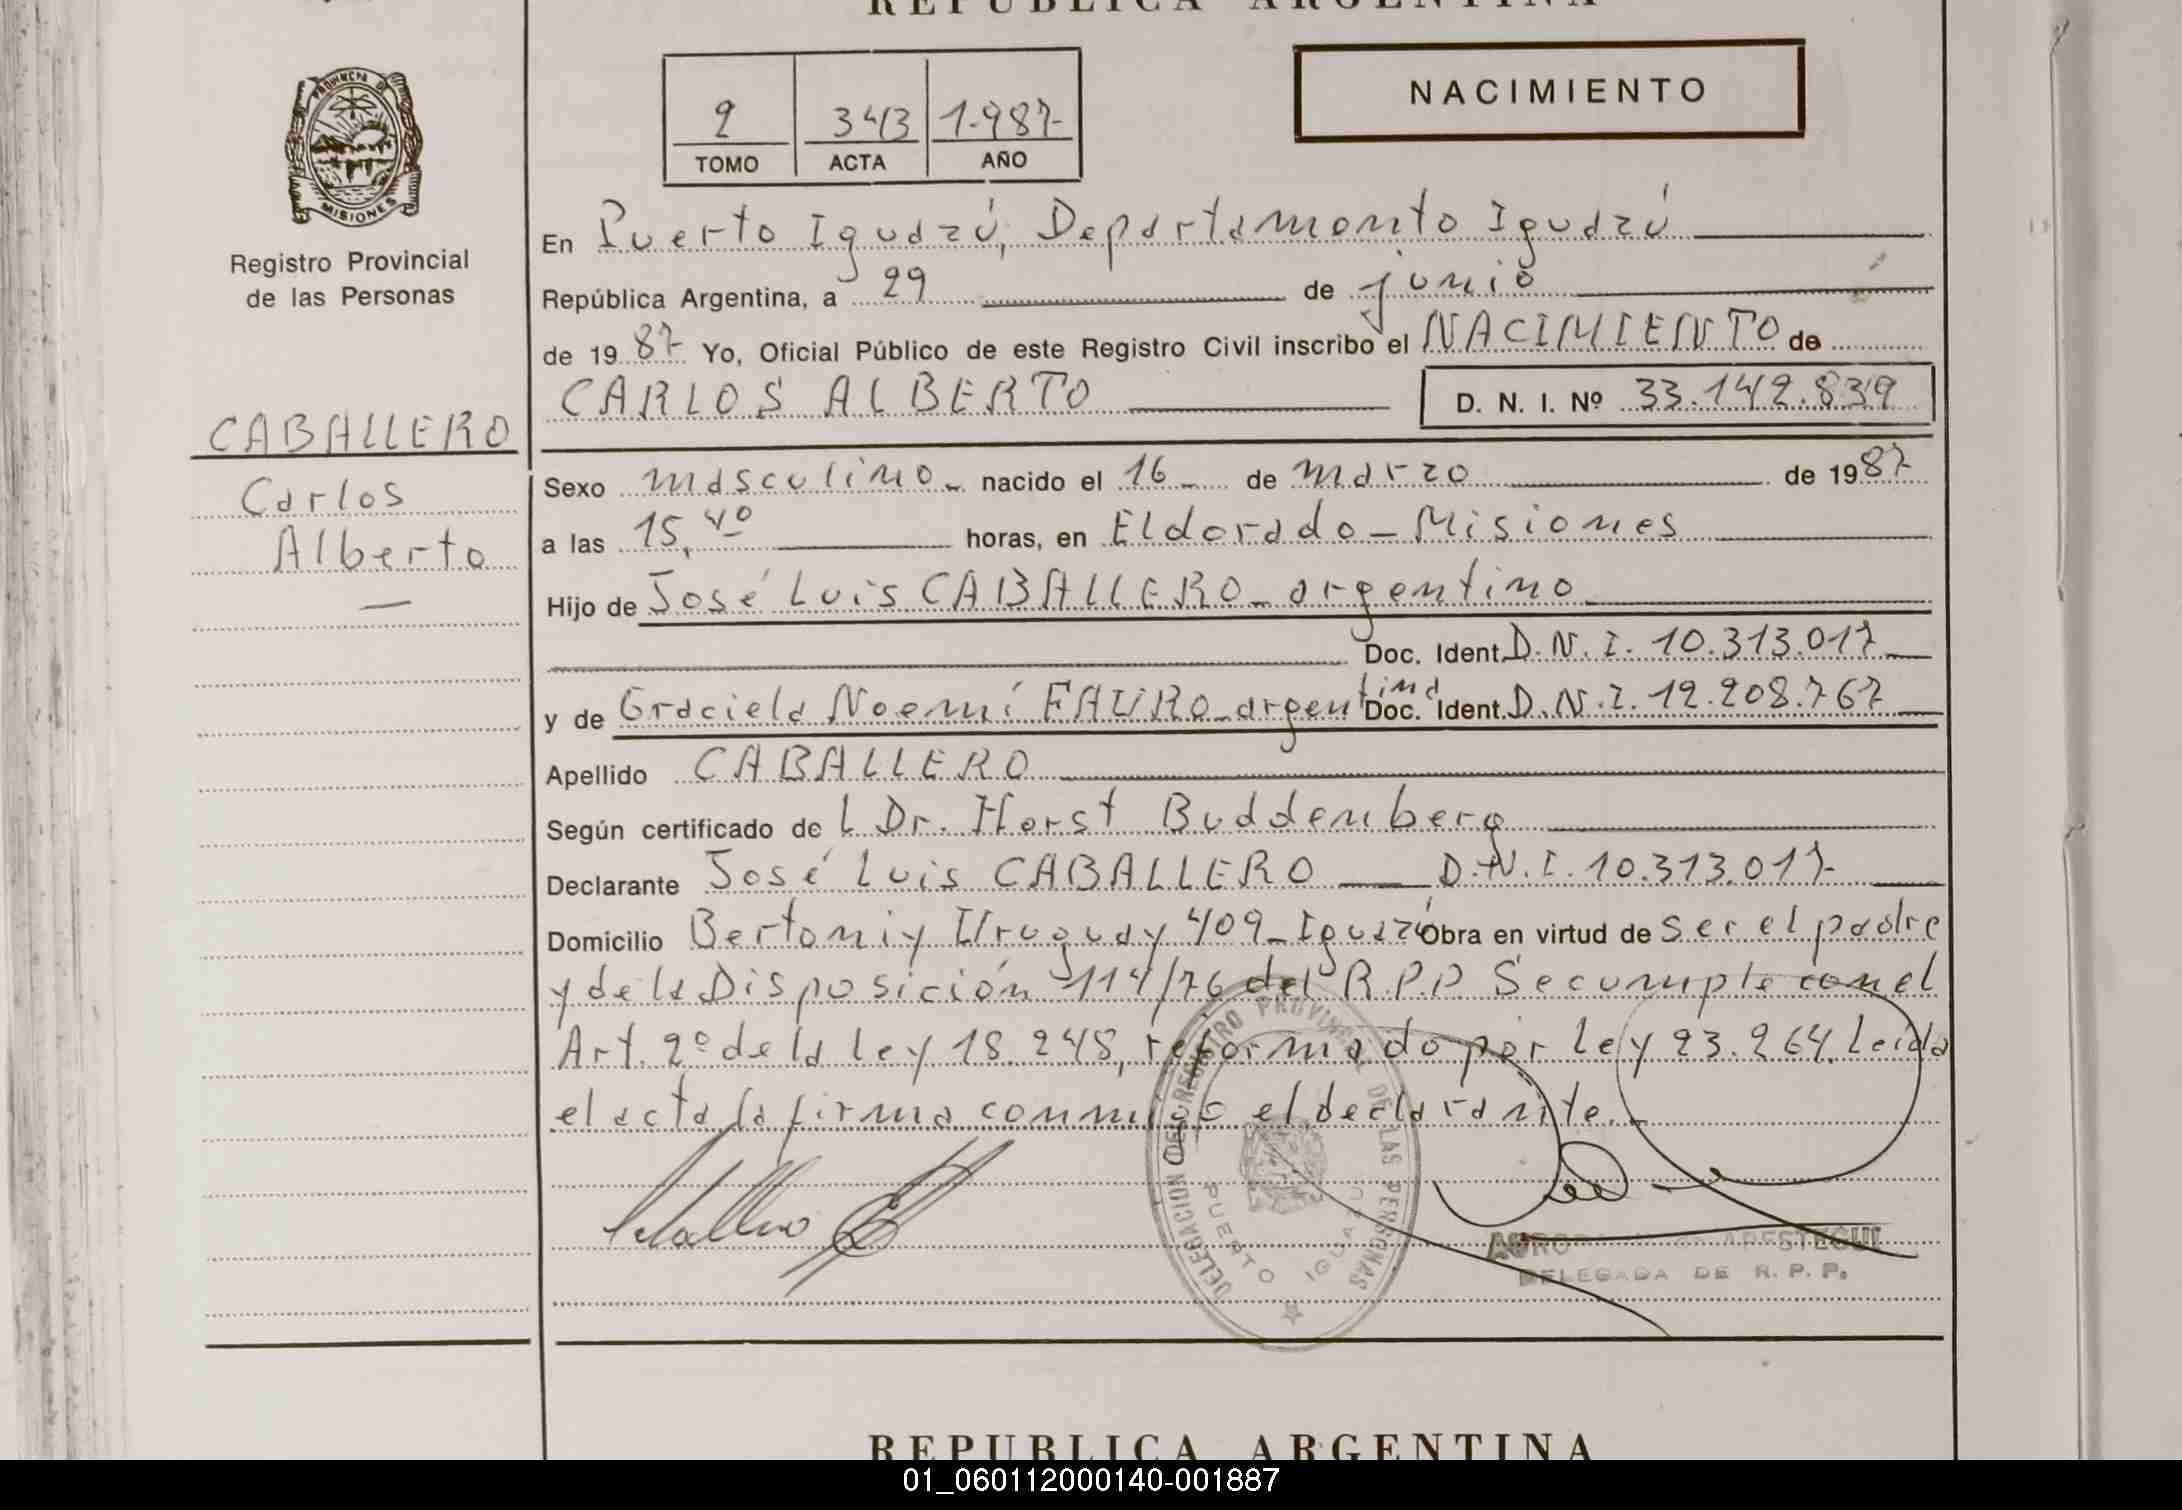 REPUBLICA ARGENTINA
PROVINCIA DE
MISIONES
Registro Provincial
de las Personas
2 343 1.987
TOMO ACTA AÑO
NACIMIENTO
En Puerto Iguazú, Departamento Iguazú
República Argentina, a 29 de junio
de 19 87 Yo, Oficial Público de este Registro Civil inscribo el NACIMIENTO de
CARLOS ALBERTO D. N. I. Nº 33.142.839
CABALLERO
Carlos
Alberto
Sexo masculino nacido el 16 de marzo de 19 87
a las 15,40 horas, en Eldorado - Misiones
Hijo de José Luis CABALLERO - argentino
Doc. Ident. D.N.I. 10.313.017
y de Graciela Noemí FAURO - argentina Doc. Ident. D.N.I. 12.208.767
Apellido CABALLERO
Según certificado de l Dr. Horst Buddemberg
Declarante José Luis CABALLERO D.N.I. 10.313.017
Domicilio Bertoni y Uruguay 409 - Iguazú Obra en virtud de ser el padre
y de la Disposición 114/76 del R.P.P. Se cumple con el
Art. 2º de la ley 18.248, reformado por ley 23.264. Leída
el acta la firma conmigo el declarante.
DELEGACION DEL REGISTRO PROVINCIAL DE LAS PERSONAS
PUERTO IGUAZU
DELEGADA DE R. P. P.
REPUBLICA ARGENTINA
01_060112000140-001887